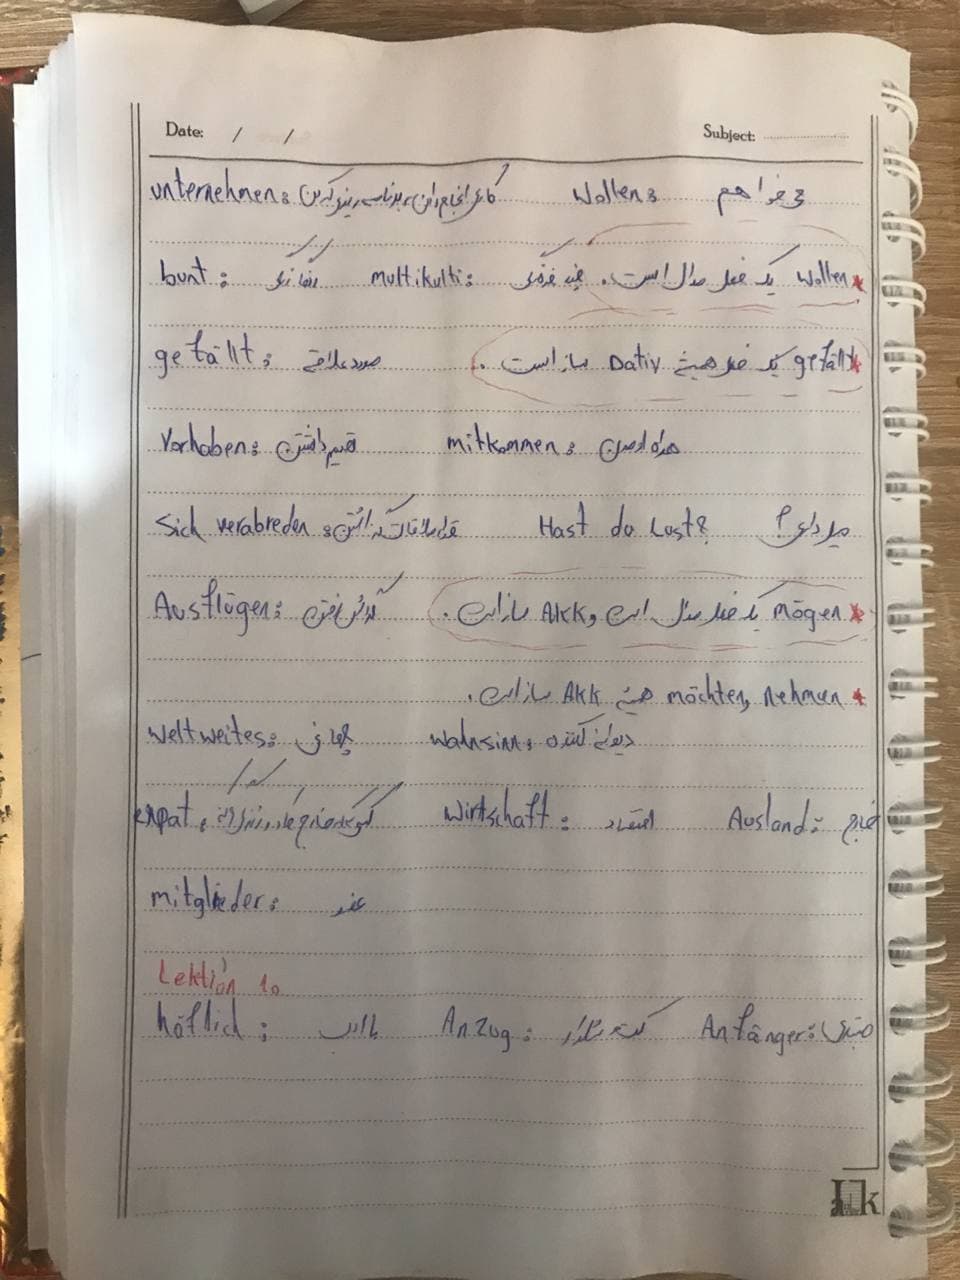 Date: / / Subject:
unternehmen: کاری انجام دادن، برنامه ریزی کردن Wollen: می‌خواهم
bunt: رنگارنگی multikulti: چند فرهنگی
* Wollen یک فعل مدال است.
gefällt: مورد علاقه * gefällt یک فعل همیشه Dativ ساز است.
Vorhaben: تصمیم داشتن mitkommen: همراه اومدن
Sich verabreden: قرار ملاقات گذاشتن Hast du Lust? میل داری؟
Ausflügen: گردش رفتن * mögen یک فعل مدال است و AKK ساز است.
* möchten, nehmen همیشه AKK ساز است.
Weltweites: جهانی Wahnsinn: دیوانه کننده
expat: کسی که خارج کار و زندگی Wirtschaft: اقتصاد Ausland: خارج
mitglieder: عضو
Lektion 10
höflich: با ادب Anzug: کت شلوار Anfänger: مبتدی